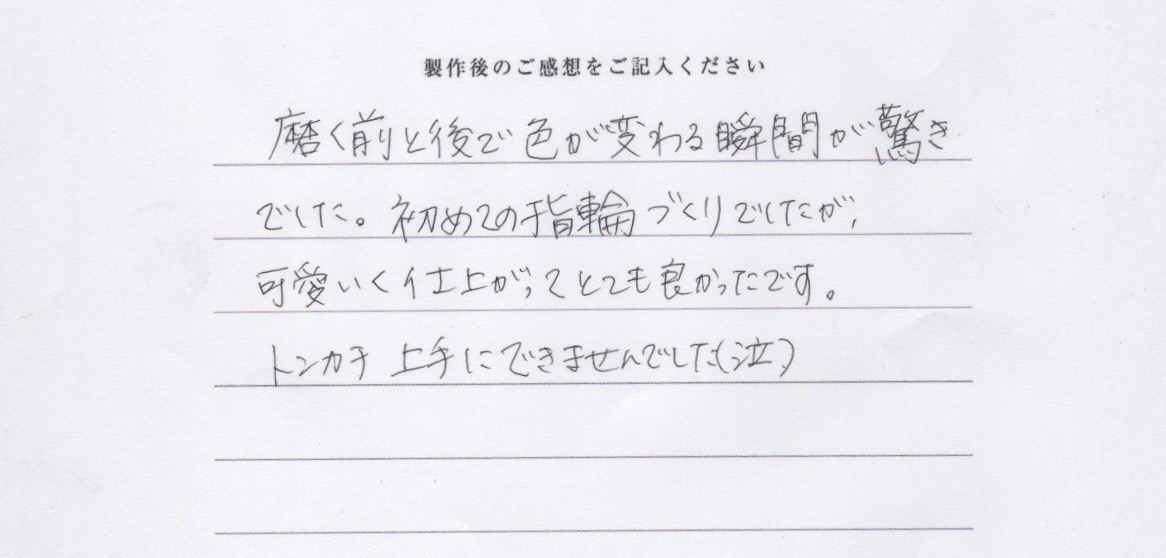 製作後のご感想をご記入ください
磨く前と後で色が変わる瞬間が驚き
でした。初めての指輪づくりでしたが、
可愛いく仕上がってとても良かったです。
トンカチ上手にできませんでした(泣)